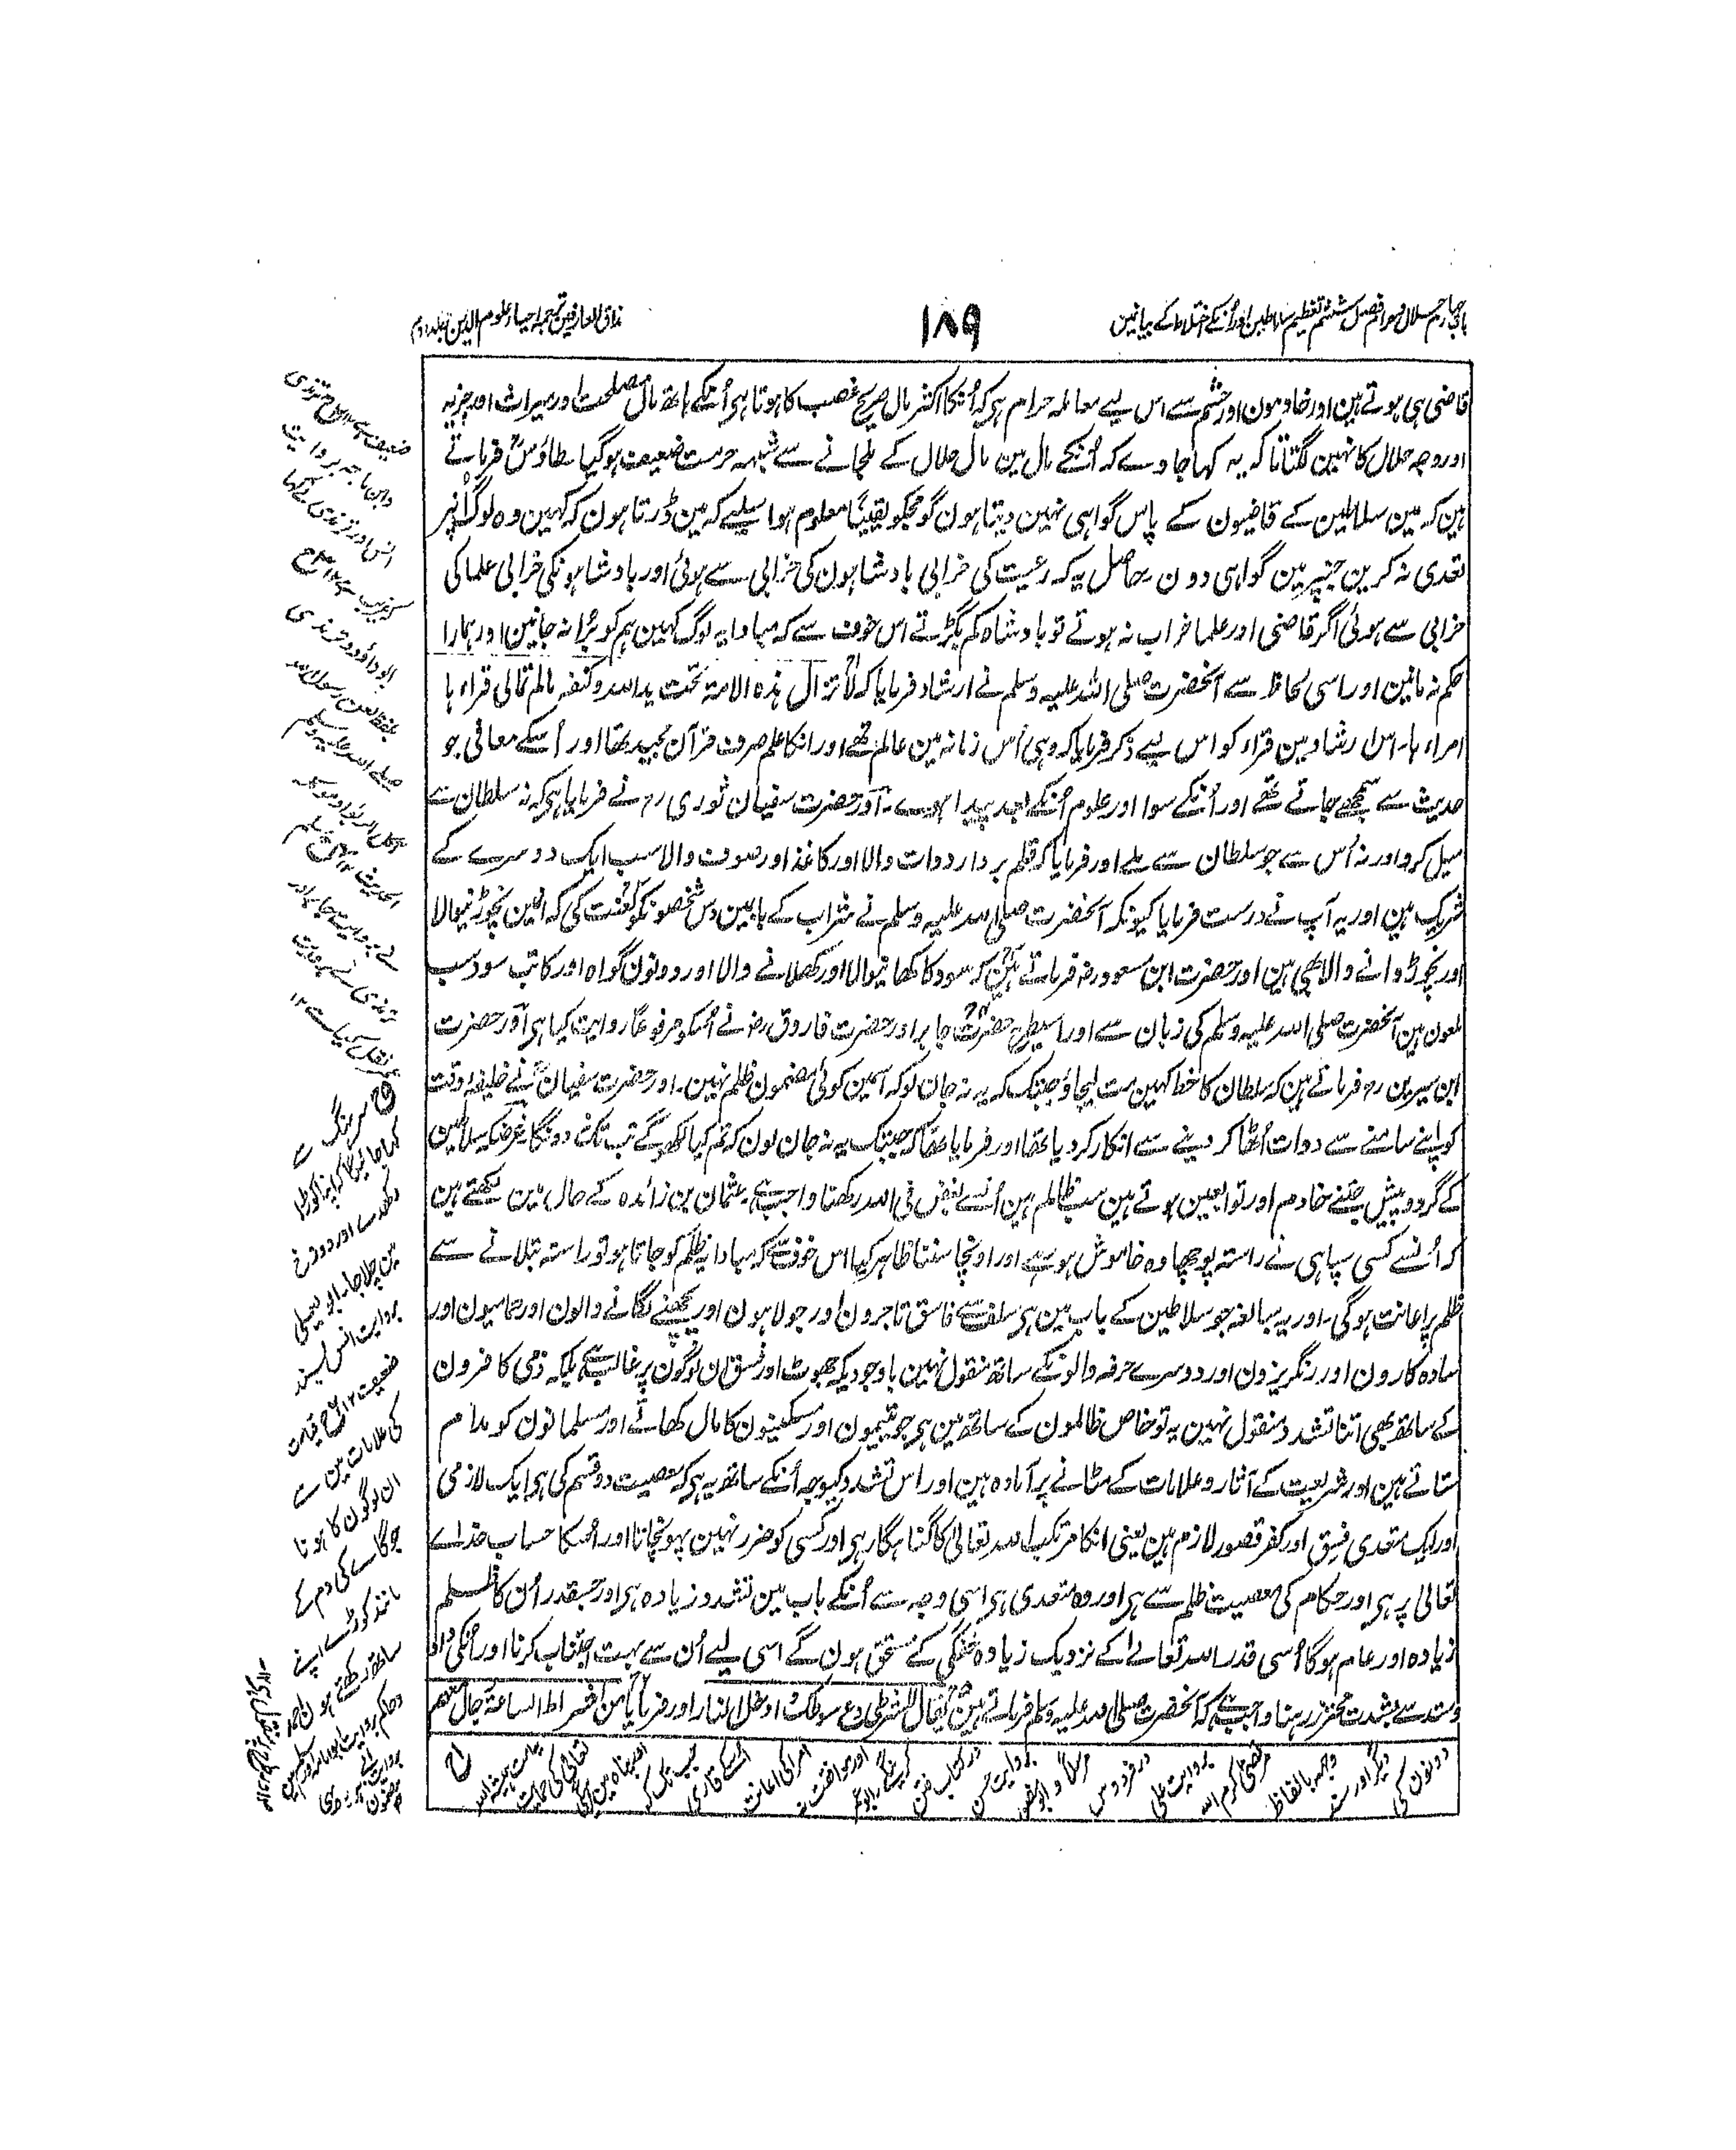 باب چہارم حلال و حرام فصل ششم تعظیم سلاطین اور اُنکے اختلاط کے بیانمین
۱۸۹
مذاق العارفین ترجمہ احیاء علوم الدین جلد دوم
قاضی ہی ہوتے ہین اور خادمون اور حشم سے اس لیے معاملہ حرام ہی کہ اُنکا اکثر مال صریح غصب کا ہوتا ہی اُنکے ہاتھ مال مصلحت اور میراث اور جزیہ
اور وجہ حلال کا نہین لگتا تاکہ یہ کہا جاوے کہ اُنکے مال مین مال حلال کے ملجانے سے شبہہ حرمت ضعیف ہوگیا طاؤس فرماتے
ہین کہ مین سلاطین کے قاضیون کے پاس گواہی نہین دیتا ہون گو مجکو یقیناً معلوم ہو اسلیے کہ مین ڈرتا ہون کہ کہین وہ لوگ اُنپر
تعدی نہ کرین جنپر مین گواہی دون حاصل یہ کہ رعیت کی خرابی بادشاہون کی خرابی سے ہوئی اور بادشاہونکی خرابی علما کی
خرابی سے ہوئی اگر قاضی اور علما خراب نہ ہوتے تو بادشاہ کم بگڑتے اس خوف سے کہ مبادا یہ لوگ کہین ہم کو بُرا نہ جانین اور ہمارا
حکم نہ مانین اور اسی لحاظ سے آنحضرت صلی اللہ علیہ وسلم نے ارشاد فرمایا کہ لا تزال ہذہ الامۃ تحت ید اللہ وکنفہ مالم تمالی قراء ہا
امراء ہا۔ اس ارشاد مین قراء کو اس لیے ذکر فرمایا کہ وہی اُس زمانہ مین عالم تھے اور انکا علم صرف قرآن مجید تھا اور اُسکے معانی جو
حدیث سے سمجھے جاتے تھے اور اُنکے سوا اور علوم اُنکے بعد پیدا ہوے۔ اور حضرت سفیان ثوری رہ نے فرمایا ہی کہ نہ سلطان سے
میل کرو اور نہ اُس سے جو سلطان سے ملے اور فرمایا کہ قلم بردار دوات والا اور کاغذ اور صوف والا سب ایک دوسرے کے
شریک ہین اور یہ آپ نے درست فرمایا کیونکہ آنحضرت صلی اللہ علیہ وسلم نے شراب کے بابمین دس شخصونکو لعنت کی کہ اُنمین نچوڑنیوالا
اور نچوڑوانے والا بھی ہین اور حضرت ابن مسعود رضہ فرماتے ہین کہ سود کا کھانیوالا اور کھلانے والا اور دونون گواہ اور کاتب سود سب
ملعون ہین آنحضرت صلی اللہ علیہ وسلم کی زبان سے اور اسیطرح حضرت جابر اور حضرت فاروق رضہ نے اُسکو مرفوعاً روایت کیا ہی اور حضرت
ابن سیرین رہ فرماتے ہین کہ سلطان کا خط کہین مت لیجاؤ جبتک کہ یہ نہ جان لو کہ اسمین کوئی مضمون ظلم نہین۔ اور حضرت سفیان نے خلیفہ وقت
کو اپنے سامنے سے دوات اُٹھا کر دینے سے انکار کردیا تھا اور فرمایا تھا کہ جبتک یہ نہ جان لون کہ تم کیا لکھوگے تب تک نہ دونگا غرضکہ سلاطین
کے گرد و پیش جتنے خادم اور توابعین ہوتے ہین سب ظالم ہین اُنسے بغض فی اللہ رکھنا واجب ہے۔ عثمان بن زائدہ کے حال مین لکھتے ہین
کہ اُنسے کسی سپاہی نے راستہ پوچھا وہ خاموش ہورہے اور اونچا سننا ظاہر کیا اس خوف سے کہ مبادا یہ ظلم کو جاتا ہو تو راستہ بتلانے سے
ظلم پر اعانت ہوگی۔ اور یہ مبالغہ جو سلاطین کے باب مین ہی سلف سے فاسق تاجرون اور جولاہون اور پچھنے لگانے والون اور حمامیون اور
سادہ کارون اور رنگریزون اور دوسرے حرفہ والونکے ساتھ منقول نہین باوجودیکہ جھوٹ اور فسق ان لوگون پر غالب ہے بلکہ ذمی کافرون
کے ساتھ بھی اتنا تشدد منقول نہین یہ تو خاص ظالمون کے ساتھ مین ہی جو یتیمون اور مسکینون کا مال کھاتے اور مسلمانون کو مدام
ستاتے ہین اور شریعت کے آثار و علامات کے مٹانے پر آمادہ ہین اور اس تشدد کیوجہ اُنکے ساتھ یہ ہی کہ معصیت دو قسم کی ہی ایک لازمی
اور ایک متعدی فسق اور کفر قصور لازم ہین یعنی انکا مرتکب اللہ تعالیٰ کا گناہگار ہی اور کسی کو ضرر نہین پہونچاتا اور اُسکا حساب خداے
تعالی پر ہی اور حکام کی معصیت ظلم سے ہی اور وہ متعدی ہی اسی وجہ سے اُنکے باب مین تشدد زیادہ ہی اور جسقدر اُن کا ظلم
زیادہ اور عام ہوگا اُسی قدر اللہ تعالے کے نزدیک زیادہ خفگی کے مستحق ہون گے اسی لیے اُن سے بہت اجتناب کرنا اور اُنکی داد
وستد سے بشدت محترز رہنا واجب ہے کہ آنحضرت صلی اللہ علیہ وسلم فرماتے ہین یقال للشرطی دع سوطک وادخل النار اور فرمایا من اشراط الساعۃ رجال معہم
دونون کی
دیگر اور سند
وجہہ بالفاظ
مرتضی کرم اللہ
بروایت علی
در فردوس
مرسلاً و ابو منصور
بروایت حسن
در کتاب فتن
اور موافقت نہ
امرا کی اعانت
اُسکے قاری
جب تک کہ
اور پناہ مین رہیگی
تعالی کی حمایت
ابو داؤد و ترمذی
بلفظ لعن رسول اللہ
صلے اللہ علیہ وسلم
آکل الربوا و موکلہ
ترمذی نے بروایت
نقل کیا ہے ۱۲
سرہنگ سے
کہا جائیگا کہ اپنا کوڑا
رکھدے اور دوزخ
مین چلا جا۔ ابو یعلی
بروایت انس بسند
ضعیف ۱۲
کی علامات مین سے
ان لوگون کا ہونا
جو گاے کی دم کے
مانند کوڑے اپنے
ساتھ رکھتے ہون احمد